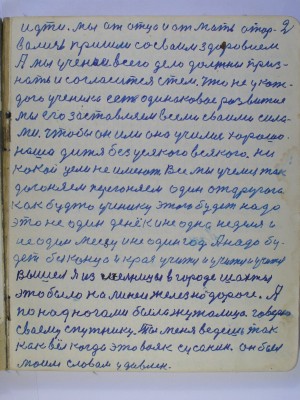 идти. мы от отца и от мать отор- 2
вались пришли со своим здоровием
А мы ученые всего дело должны приз-
нать и согласится с тем, что не у каж-
дого ученика есть одинаковое развитие
мы его заставляем всеми своими сила-
ми. чтобы он или она учились хорошо.
наша дитя без усякого всякого. ни
какой цели не имеют Все мы учемы так
догоняем перегоняем один от другога
как будто ученику этого будет надо
это не один денёк и не одна неделя и
не один месяц и не один год. А надо бу-
дет без конца и края учится и учится и учится
Вышел я из мелницы в городе шахты
это было на линии железной дороге. А
по над ногами была жужалица. говорю
своему спутнику. Ты меня ведешь так
как вёл когда это вояк сусанин. он был
моим словам удивлен.